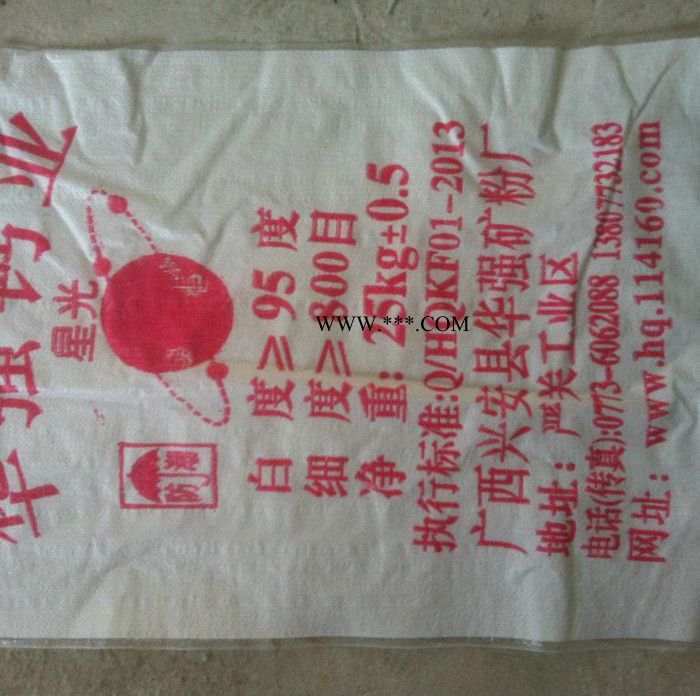 华强钙业
星光
防潮
白度≥95度
细度≥800目
净重:25kg±0.5
执行标准:Q/HQKF01-2013
广西兴安县华强矿粉厂
地址:严关工业区
电话(传真):0773-6062088 13807732183
网址:www.hq.114160.com
WWW.***.COM